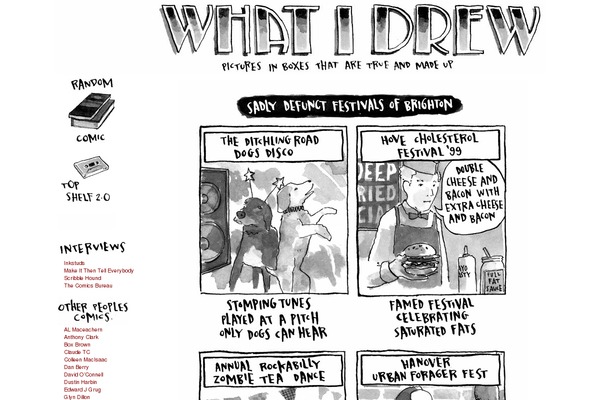 WHAT I DREW
PICTURES IN BOXES THAT ARE TRUE AND MADE UP
RANDOM
COMIC
TOP
SHELF 2.0
INTERVIEWS
Inkstuds
Make It Then Tell Everybody
Scribble Hound
The Comics Bureau
OTHER PEOPLES
COMICS.
AL Maceachern
Anthony Clark
Box Brown
Claude TC
Colleen MacIsaac
Dan Berry
David O'Connell
Dustin Harbin
Edward J Grug
Glyn Dillon
SADLY DEFUNCT FESTIVALS OF BRIGHTON
THE DITCHLING ROAD
DOGS DISCO
STOMPING TUNES
PLAYED AT A PITCH
ONLY DOGS CAN HEAR
HOVE CHOLESTEROL
FESTIVAL '99
DEEP
RIED
DOUBLE
CHEESE AND
BACON WITH
EXTRA CHEESE
AND BACON
FULL
FAT
SAUCE
FAMED FESTIVAL
CELEBRATING
SATURATED FATS
ANNUAL ROCKABILLY
ZOMBIE TEA DANCE
HANOVER
URBAN FORAGER FEST